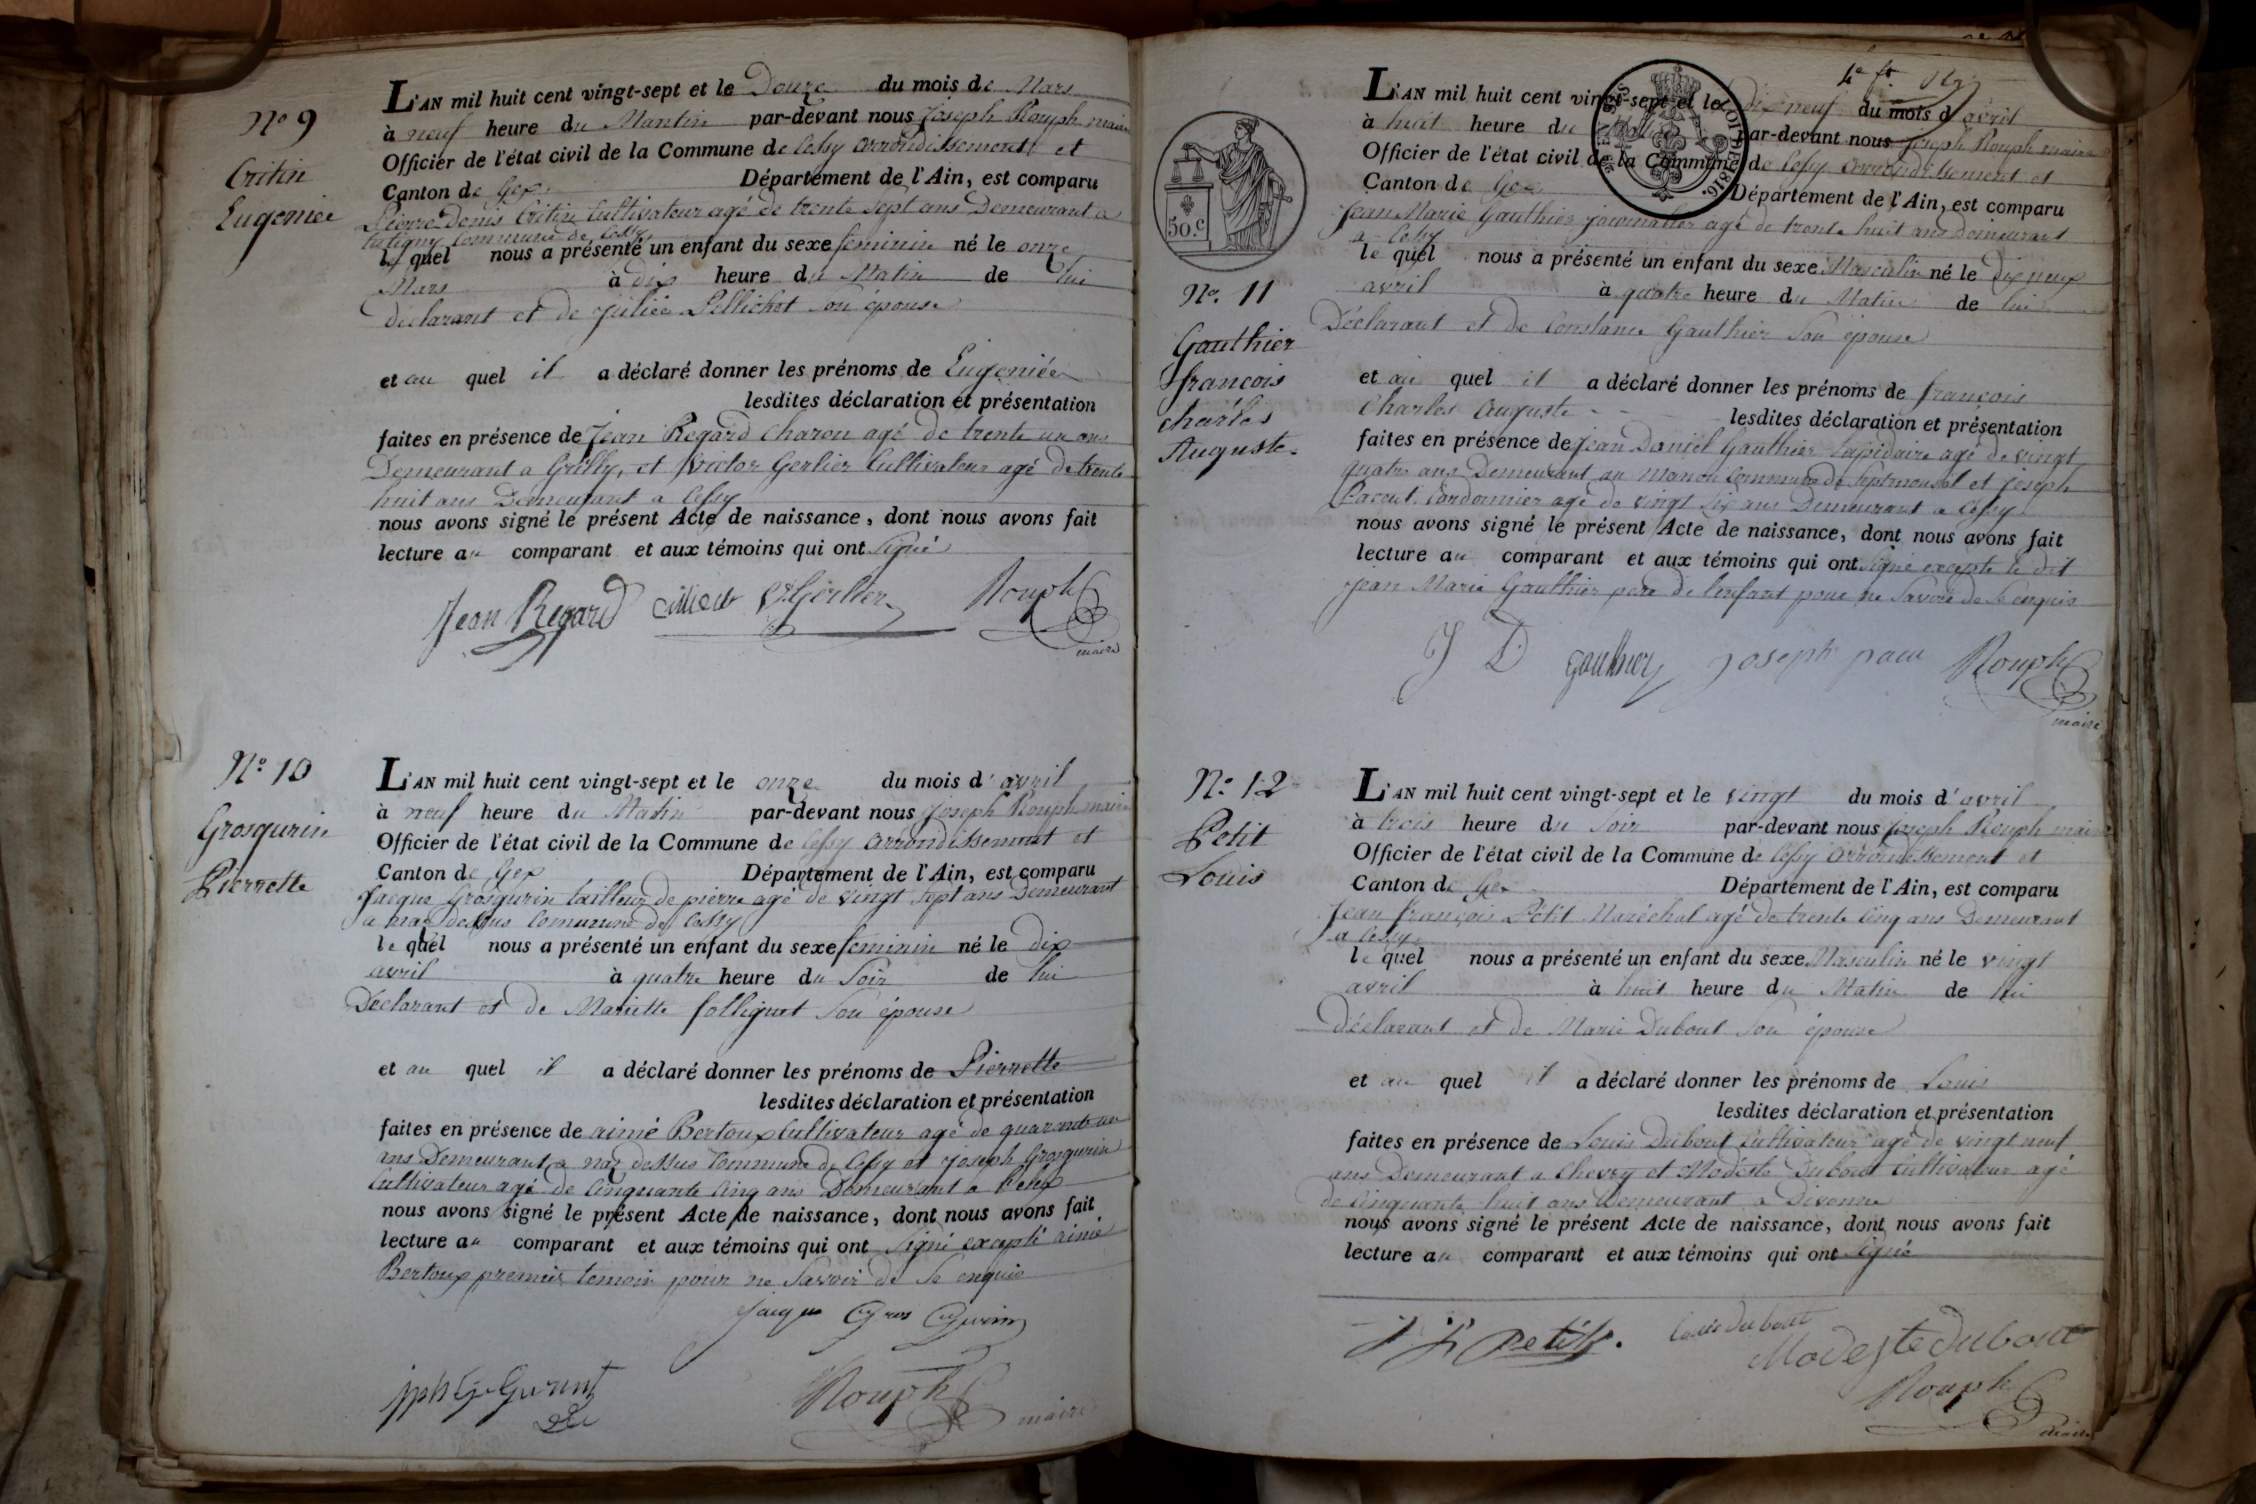 No 9
Critin
Eugeniée
L'AN mil huit cent vingt-sept et le Douze du mois de Mars
à neuf heure du Mantin par-devant nous Joseph Rouph maire
Officier de l'état civil de la Commune de Cessy arrondissement et
Canton de Gex Département de l'Ain, est comparu
Pierre Denis Critin Cultivateur agé de trente sept ans Demeurant a
tutigny Commune de Cessy
le quel nous a présenté un enfant du sexe feminin né le onze
Mars à dix heure du Matin de lui
déclarant et de Juliée Pellichot son épouse
et au quel il a déclaré donner les prénoms de Eugeniée
lesdites déclaration et présentation
faites en présence de Jean Regard Charon agé de trente un ans
Demeurant a Grilly, et victor Gerlier Cultivateur agé de trente
huit ans Demeurant a Cessy
nous avons signé le présent Acte de naissance, dont nous avons fait
lecture au comparant et aux témoins qui ont signé
Jean Regard Gerlier Rouph
maire
No 10
Grosgurin
Pierrette
L'AN mil huit cent vingt-sept et le onze du mois d'avril
à neuf heure du Matin par-devant nous Joseph Rouph maire
Officier de l'état civil de la Commune de Cessy arrondissement et
Canton de Gex Département de l'Ain, est comparu
Jacque Grosgurin tailleur de pierre agé de vingt sept ans Demeurant
a naz dessus Commune de Cessy
le quel nous a présenté un enfant du sexe feminin né le dix
avril à quatre heure du Soir de lui
Déclarant et de Mariette folliguet son épouse
et au quel il a déclaré donner les prénoms de Pierrette
lesdites déclaration et présentation
faites en présence de aimé Bertoux Cultivateur agé de quarante un
ans Demeurant a naz dessus Commune de Cessy et Joseph Grosgurin
Cultivateur agé de Cinquante Cinq ans Demeurant a
nous avons signé le présent Acte de naissance, dont nous avons fait
lecture au comparant et aux témoins qui ont signé excepté aimé
Bertoux premier temoin pour ne Savoir de Se enquis
Jacque Gros Gurin
Jph G Gurin
Rouph maire
50.C
LOI DE 1816.
No. 11
Gauthier
françois
charles
Auguste.
L'AN mil huit cent vingt-sept et le dix neuf du mois d'avril
à huit heure du par-devant nous Joseph Rouph maire
Officier de l'état civil de la Commune de Cessy arrondissement et
Canton de Gex Département de l'Ain, est comparu
Jean Marie Gauthier journalier agé de trente huit ans Demeurant
a Cessy
le quel nous a présenté un enfant du sexe Masculin né le dix neuf
avril à quatre heure du Matin de lui
Déclarant et de Constance Gauthier son épouse
et au quel il a déclaré donner les prénoms de françois
Charles auguste lesdites déclaration et présentation
faites en présence de Jean Daniel Gauthier Lapidaire agé de vingt
quatre ans Demeurant au Manon Commune de Septmoncel et Joseph
Pacout Cordonnier agé de vingt six ans Demeurant a Cessy
nous avons signé le présent Acte de naissance, dont nous avons fait
lecture au comparant et aux témoins qui ont signé excepté le dit
Jean Marie Gauthier pere de l'enfant pour ne Savoir de Se enquis
J D gauthier joseph pacu Rouph
maire
No. 12
Petit
Louis
L'AN mil huit cent vingt-sept et le vingt du mois d'avril
à trois heure du soir par-devant nous Joseph Rouph maire
Officier de l'état civil de la Commune de Cessy arrondissement et
Canton de Gex Département de l'Ain, est comparu
Jean françois Petit Maréchal agé de trente Cinq ans Demeurant
a Cessy
le quel nous a présenté un enfant du sexe Masculin né le vingt
avril à huit heure du Matin de lui
déclarant et de Marie Dubout son épouse
et au quel il a déclaré donner les prénoms de Louis
lesdites déclaration et présentation
faites en présence de Louis Dubout Cultivateur agé de vingt neuf
ans Demeurant a Chevry et Modeste Dubout Cultivateur agé
de Cinquante huit ans Demeurant a Divonne
nous avons signé le présent Acte de naissance, dont nous avons fait
lecture au comparant et aux témoins qui ont signé
J f petit. Louis dubout
Modeste dubout
Rouph
maire